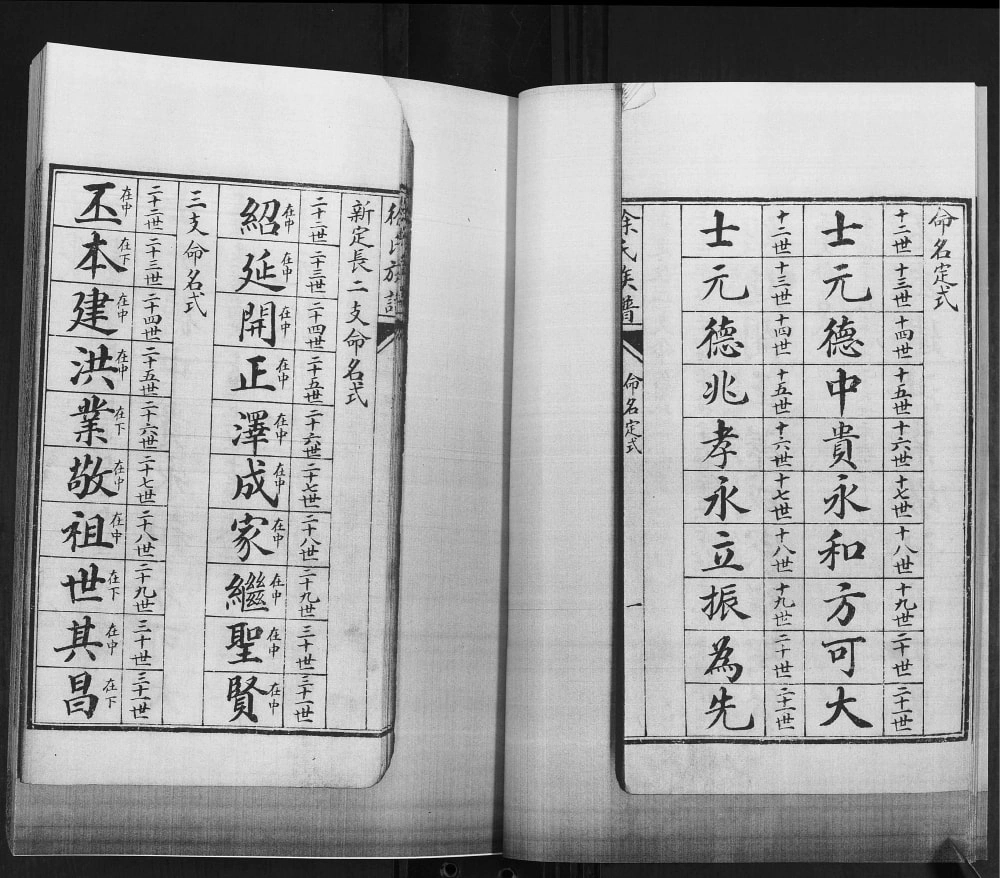 命名定式
十二世 十三世 十四世 十五世 十六世 十七世 十八世 十九世 二十世 二十一世
士元德中貴永和方可大
十二世 十三世 十四世 十五世 十六世 十七世 十八世 十九世 二十世 二十一世
士元德兆孝永立振為先
氏族譜 命名定式 一
氏族譜
新定長二支命名式
二十二世 二十三世 二十四世 二十五世 二十六世 二十七世 二十八世 二十九世 三十世 三十一世
在中 在中 在中 在中 在中 在中 在中 在中 在中 在中
紹延開正澤成家繼聖賢
三支命名式
二十二世 二十三世 二十四世 二十五世 二十六世 二十七世 二十八世 二十九世 三十世 三十一世
在中 在下 在中 在中 在下 在中 在中 在下 在中 在下
丕本建洪業敬祖世其昌